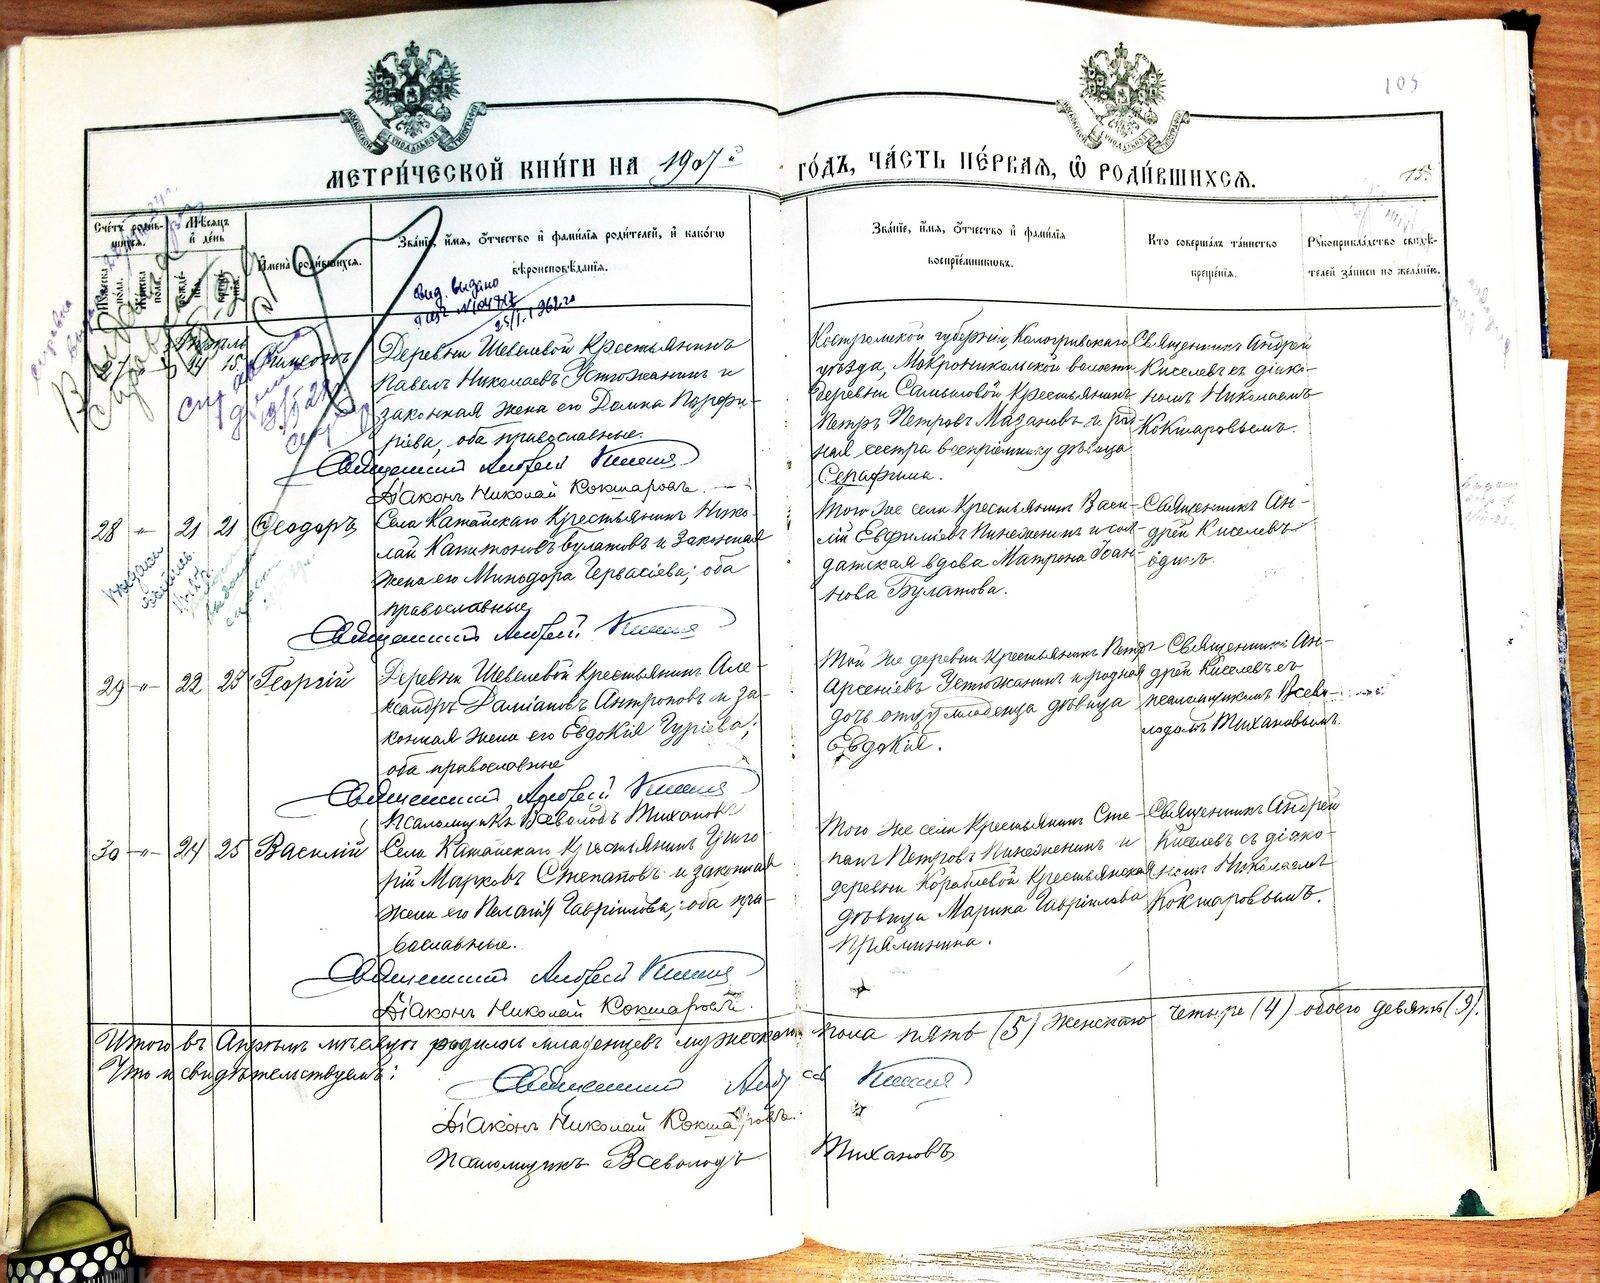 105
МЕТРИ́ЧЕСКОЙ КНИ́ГИ НА 1907й
ГО́ДЪ, ЧА́СТЬ ПЕ́РВАЯ, Ѡ҆ РОДИ́ВШИХСЯ.
15.
Счетъ роди́вшихся.
Мѣсяцъ и день
Имена родившихся.
Зва́нїе, и́мя, ѻ́тчество и фами́лїя роди́телей, и како́гѡ
вѣроисповѣ́данїя.
Зва́нїе, и́мя, ѻ́тчество и фами́лїя
воспрїе́мниковъ.
Кто соверша́лъ та́инство
креще́нїя.
Рꙋкоприкла́дство свидѣ́-
телей за́писи по жела́нїю.
Свид. выдано
25/I-1962 г.
Апрѣль
14 15. Симеонъ
Деревни Шевелевой Крестьянинъ
Павелъ Николаевъ Устюжанинъ и
законная жена его Домна Порфи-
рiева, оба православные.
Священникъ Андрей Киселевъ
Дiаконъ Николай Кокшаровъ
Костромской губернiи Кологривскаго
уѣзда, Мокроникольской волости
деревни Самыловой Крестьянинъ
Петръ Петровъ Мазановъ и род
ная сестра воспрiемнику дѣвица
Серафима.
Священникъ Андрей
Киселевъ съ дiако-
номъ Николаемъ
Кокшаровымъ.
28 -"- 21 21 Ѳеодоръ
Села Катайскаго Крестьянинъ Нико-
лай Капитоновъ Булатовъ и законная
жена его Минодора Гервасiева; оба
православные
Священникъ Андрей Киселевъ
Того же села Крестьянинъ Васи-
лiй Евфимiевъ Пинеженинъ и сол-
датская вдова Матрона Iоан-
нова Булатова.
Священникъ Ан-
дрей Киселевъ
одинъ.
29 -"- 22 23 Георгiй
Деревни Шевелевой Крестьянинъ Але-
ксандръ Дамiановъ Антроповъ и за-
конная жена его Евдокiя Гурiева;
оба православные
Священникъ Андрей Киселевъ
Псаломщикъ Всеволодъ Тихановъ
Той же деревни Крестьянинъ Петръ
Арсенiевъ Устюжанинъ и родная
дочь отцу младенца дѣвица
Евдокiя.
Священникъ Ан-
дрей Киселевъ съ
псаломщикомъ Всево-
лодомъ Тихановымъ.
30 -"- 24 25 Василiй
Села Катайскаго Крестьянинъ Григо-
рiй Марковъ Степановъ и законная
жена его Пелагiя Гаврiилова; оба пра-
вославные.
Священникъ Андрей Киселевъ
Дiаконъ Николай Кокшаровъ.
Того же села Крестьянинъ Сте-
панъ Петровъ Пинеженинъ и
деревни Кораблевой Крестьянская
дѣвица Марина Гаврiилова
Прямичина.
Священникъ Андрей
Киселевъ съ дiако-
номъ Николаемъ
Кокшаровымъ.
Итого въ Апрѣлѣ мѣсяцѣ родилось младенцевъ мужескаго пола пять (5) женскаго четыре (4) обоего девять (9).
Что и свидѣтельствуемъ:
Священникъ Андрей Киселевъ
Дiаконъ Николай Кокшаровъ.
Псаломщикъ Всеволодъ Тихановъ